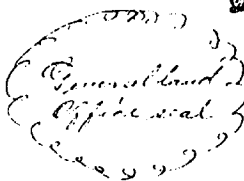 General land
Office seal.